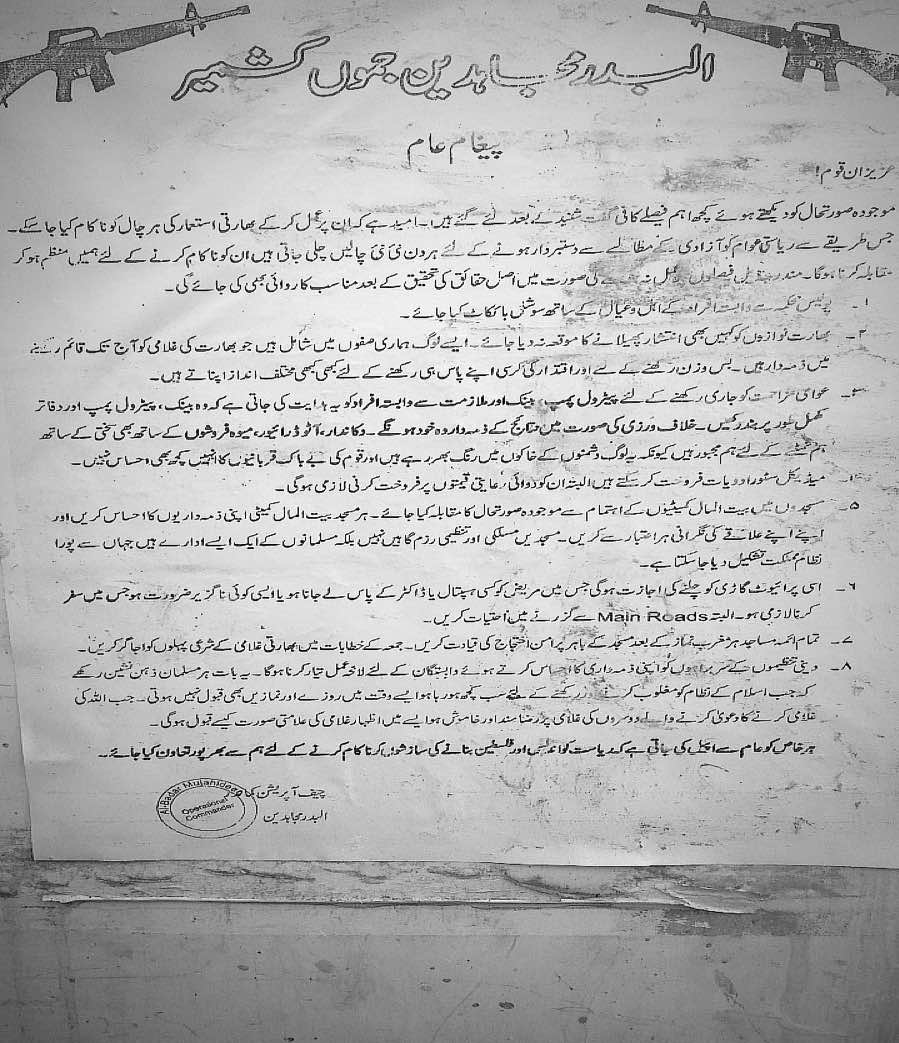 البدر مجاہدین جموں کشمیر
پیغام عام
عزیزان قوم!
موجودہ صورتحال کو دیکھتے ہوئے کچھ اہم فیصلے کافی گفت شنید کے بعد لئے گئے ہیں۔ امید ہے کہ ان پر عمل کر کے بھارتی استعمار کی ہر چال کو ناکام کیا جا سکے۔
جس طریقے سے ریاستی عوام کو آزادی کے مطالبے سے دستبردار ہونے کے لئے ہر دن نئی نئی چالیں چلی جاتی ہیں ان کو ناکام کرنے کے لئے ہمیں منظم ہو کر
مقابلہ کرنا ہوگا۔ مندرجہ ذیل فیصلوں عمل نہ کی صورت میں اصل حقائق کی تحقیق کے بعد مناسب کاروائی بھی کی جائے گی۔
۱۔ پولیس محکمہ سے وابستہ افراد کے اہل و عیال کے ساتھ سوشل بائیکاٹ کیا جائے۔
۲۔ بھارت نوازوں کو کہیں بھی انتشار پھیلانے کا موقعہ نہ دیا جائے۔ ایسے لوگ ہماری صفوں میں شامل ہیں جو بھارت کی غلامی کو آج تک قائم رکھنے
میں ذمہ دار ہیں۔ بس وزن رکھنے کے لئے اور اقتدار کی کرسی اپنے پاس ہی رکھنے کے لئے کبھی کبھی مختلف انداز اپناتے ہیں۔
۳۔ عوامی مزاحمت کو جاری رکھنے کے لئے پیٹرول پمپ، بینک اور ملازمت سے وابستہ افراد کو یہ ہدایت کی جاتی ہے کہ وہ بینک، پیٹرول پمپ اور دفاتر
مکمل طور پر بند رکھیں۔ خلاف ورزی کی صورت میں نتائج کے ذمہ دار وہ خود ہونگے۔ دکاندار، آٹو ڈرائیور، میوہ فروشوں کے ساتھ بھی سختی کے ساتھ
ہم نمٹنے کے لئے ہم مجبور ہیں کیونکہ یہ لوگ دشمنوں کے خاکوں میں رنگ بھر رہے ہیں اور قوم کی بے باک قربانیوں کا انہیں کچھ بھی احساس نہیں۔
میڈیکل سٹور ادویات فروخت کر سکتے ہیں البتہ ان کو دوائی رعایتی قیمتوں پر فروخت کرنی لازمی ہوگی۔
۵۔ مسجدوں میں بیت المال کمیٹیوں کے اہتمام سے موجودہ صورتحال کا مقابلہ کیا جائے۔ ہر مسجد بیت المال کمیٹی اپنی ذمہ داریوں کا احساس کریں اور
اپنے اپنے علاقے کی نگرانی ہر اعتبار سے کریں۔ مسجدیں مسلکی اور تنظیمی رزم گاہیں نہیں بلکہ مسلمانوں کے ایک ایسے ادارے ہیں جہاں سے پورا
نظام مملکت تشکیل دیا جا سکتا ہے۔
۶۔ اسی پرائیوٹ گاڑی کو چلنے کی اجازت ہوگی جس میں مریض کو کسی ہسپتال یا ڈاکٹر کے پاس لے جانا ہو یا ایسی کوئی ناگزیر ضرورت ہو جس میں سفر
کرنا لازمی ہو۔ البتہ Main Roads سے گزرنے میں احتیاط کریں۔
۷۔ تمام ائمہ مساجد ہر مغرب نماز کے بعد مسجد کے باہر پر امن احتجاج کی قیادت کریں۔ جمعہ کے خطابات میں بھارتی غلامی کے شرعی پہلوں کو اجاگر کریں۔
۸۔ دینی تنظیموں کے سربراہوں کو اپنی ذمہ داری کا احساس کرتے ہوئے وابستگان کے لئے لائحہ عمل تیار کرنا ہوگا۔ یہ بات ہر مسلمان ذہن نشین رکھے
کہ جب اسلام کے نظام کو مغلوب کرنے رکھنے کے لئے سب کچھ ہو رہا ہو ایسے وقت میں روزے اور نمازیں بھی قبول نہیں ہوتی۔ جب اللہ کی
غلامی کرنے کا دعویٰ کرنے والے دوسروں کی غلامی پر رضامند اور خاموش ہو ایسے میں اظہار غلامی کی علامتی صورت کیسے قبول ہوگی۔
ہر خاص کو عام سے اپیل کی جاتی ہے کہ ریاست کو اندلس اور فلسطین بنانے کی سازشوں کو ناکام کرنے کے لئے ہم سے بھر پور تعاون کیا جائے۔
چیف آپریشن کمانڈر
البدر مجاہدین
Al-Badar Mujahideen
Operational
Commander